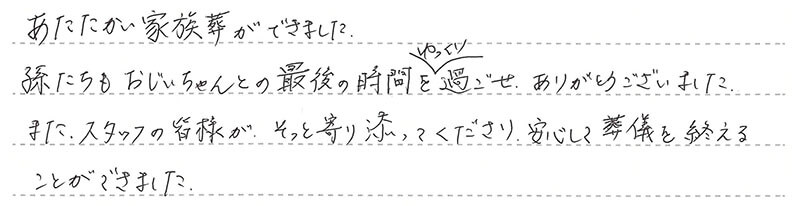 あたたかい家族葬ができました.
孫たちもおじいちゃんとの最後の時間をゆっくり過ごせ.ありがとうございました.
また.スタッフの皆様が.そっと寄り添ってくださり.安心して葬儀を終える
ことができました.